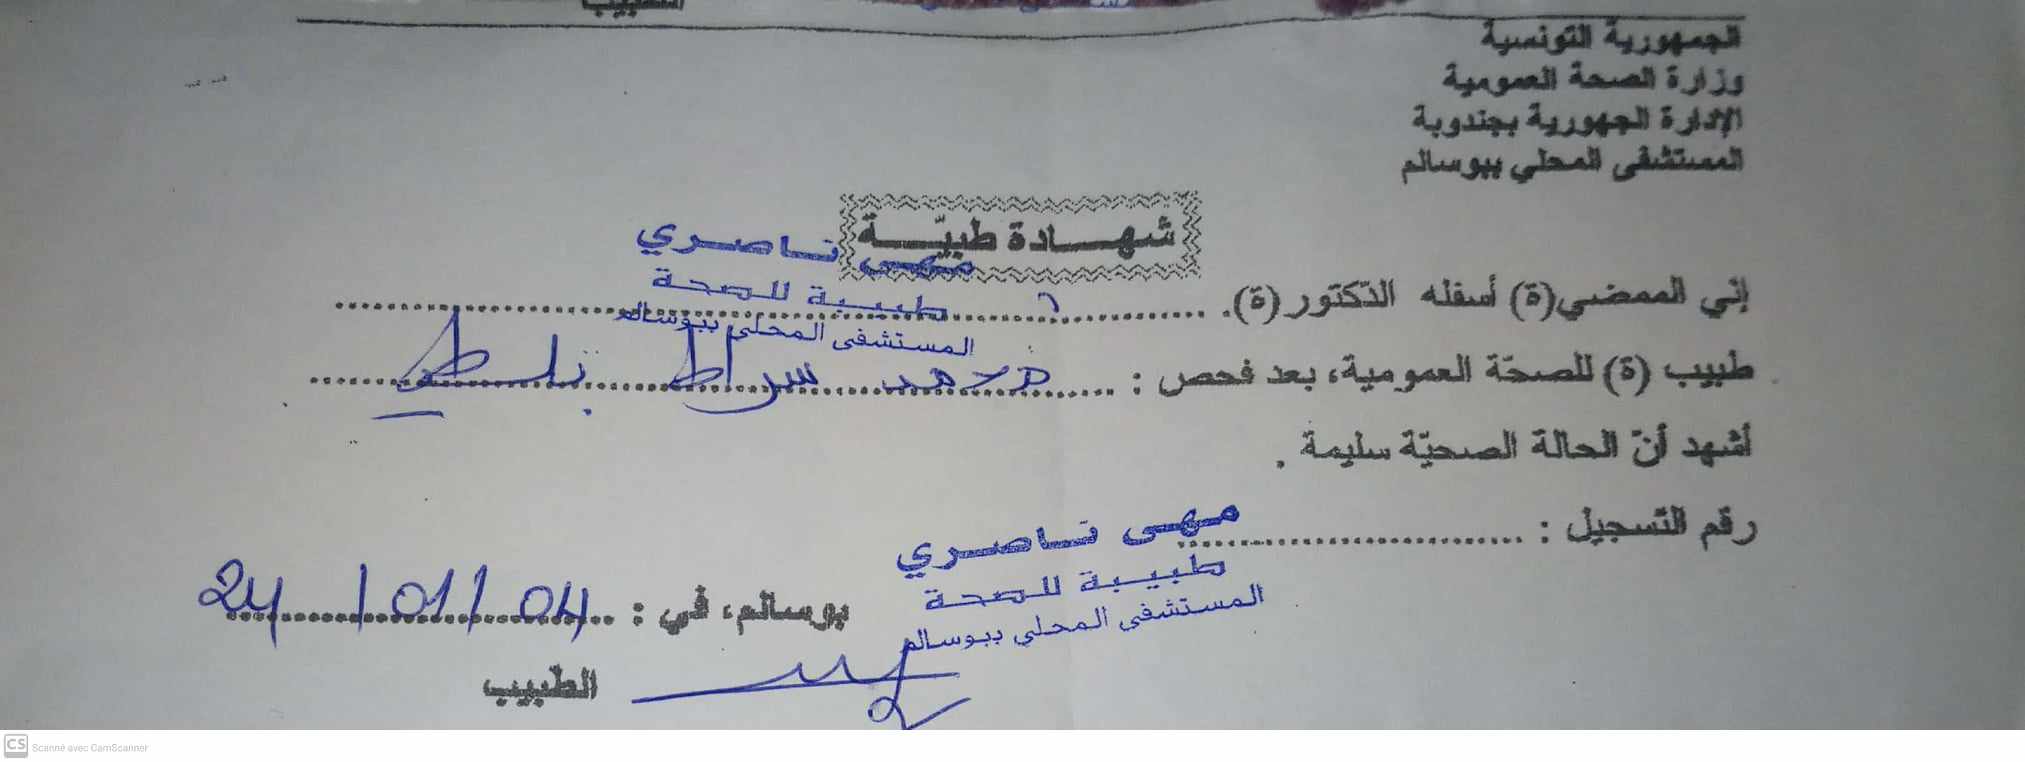 الجمهورية التونسية
وزارة الصحة العمومية
الإدارة الجهورية بجندوبة
المستشفى المحلي ببوسالم
شهادة طبيّة
مهى ناصري
طبيبة للصحة
المستشفى المحلي ببوسالم
إنّي الممضي(ة) أسفله الدّكتور(ة).
طبيب (ة) للصحّة العمومية، بعد فحص : محمد سراط
أشهد أنّ الحالة الصحيّة سليمة .
رقم التّسجيل :
مهى ناصري
طبيبة للصحة
المستشفى المحلي ببوسالم
بوسالم، في : 04 / 01 / 24
الطّبيب
CS Scanné avec CamScanner